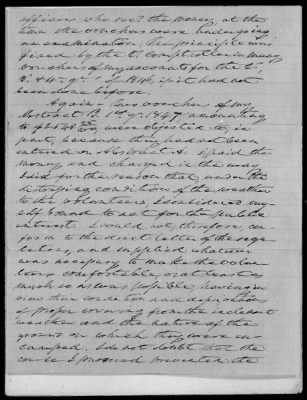 officers who rec'd the money, at the
time the vouchers were undergoing
an examination. The principle was
fixed by the 2d Comptroller in many
vouchers of my accounts for the 2d
3d & 4th qrs of 1846, if it had not
been done before.
Again - Two vouchers of my
Abstract B. 1st qr 1847 amounting
to were objected to, in
part, because they had not been
entered on I paid the
money and charged in the way
I did for the reason that under the
distressing condition of the weather
to the volunteers, I considered my-
self bound to act for the public
interest. I could not, therefore, con-
form to the direct letter of the regu-
lations, and supplied whatever
was necessary to make the volun-
teers comfortable, or at least as
much so as was possible, having in
view their condition and deprivation
of proper covering from the inclement
weather and the nature of the
ground on which they were en-
camped. I do not doubt that the
course I pursued prevented the